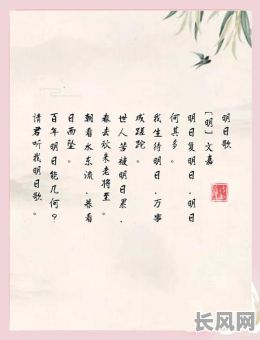 明日歌
[明] 文嘉
明日复明日，明日
何其多。
我生待明日，万事
成蹉跎。
世人苦被明日累，
春去秋来老将至。
朝看水东流，暮看
日西坠。
百年明日能几何？
请君听我明日歌。
长风网